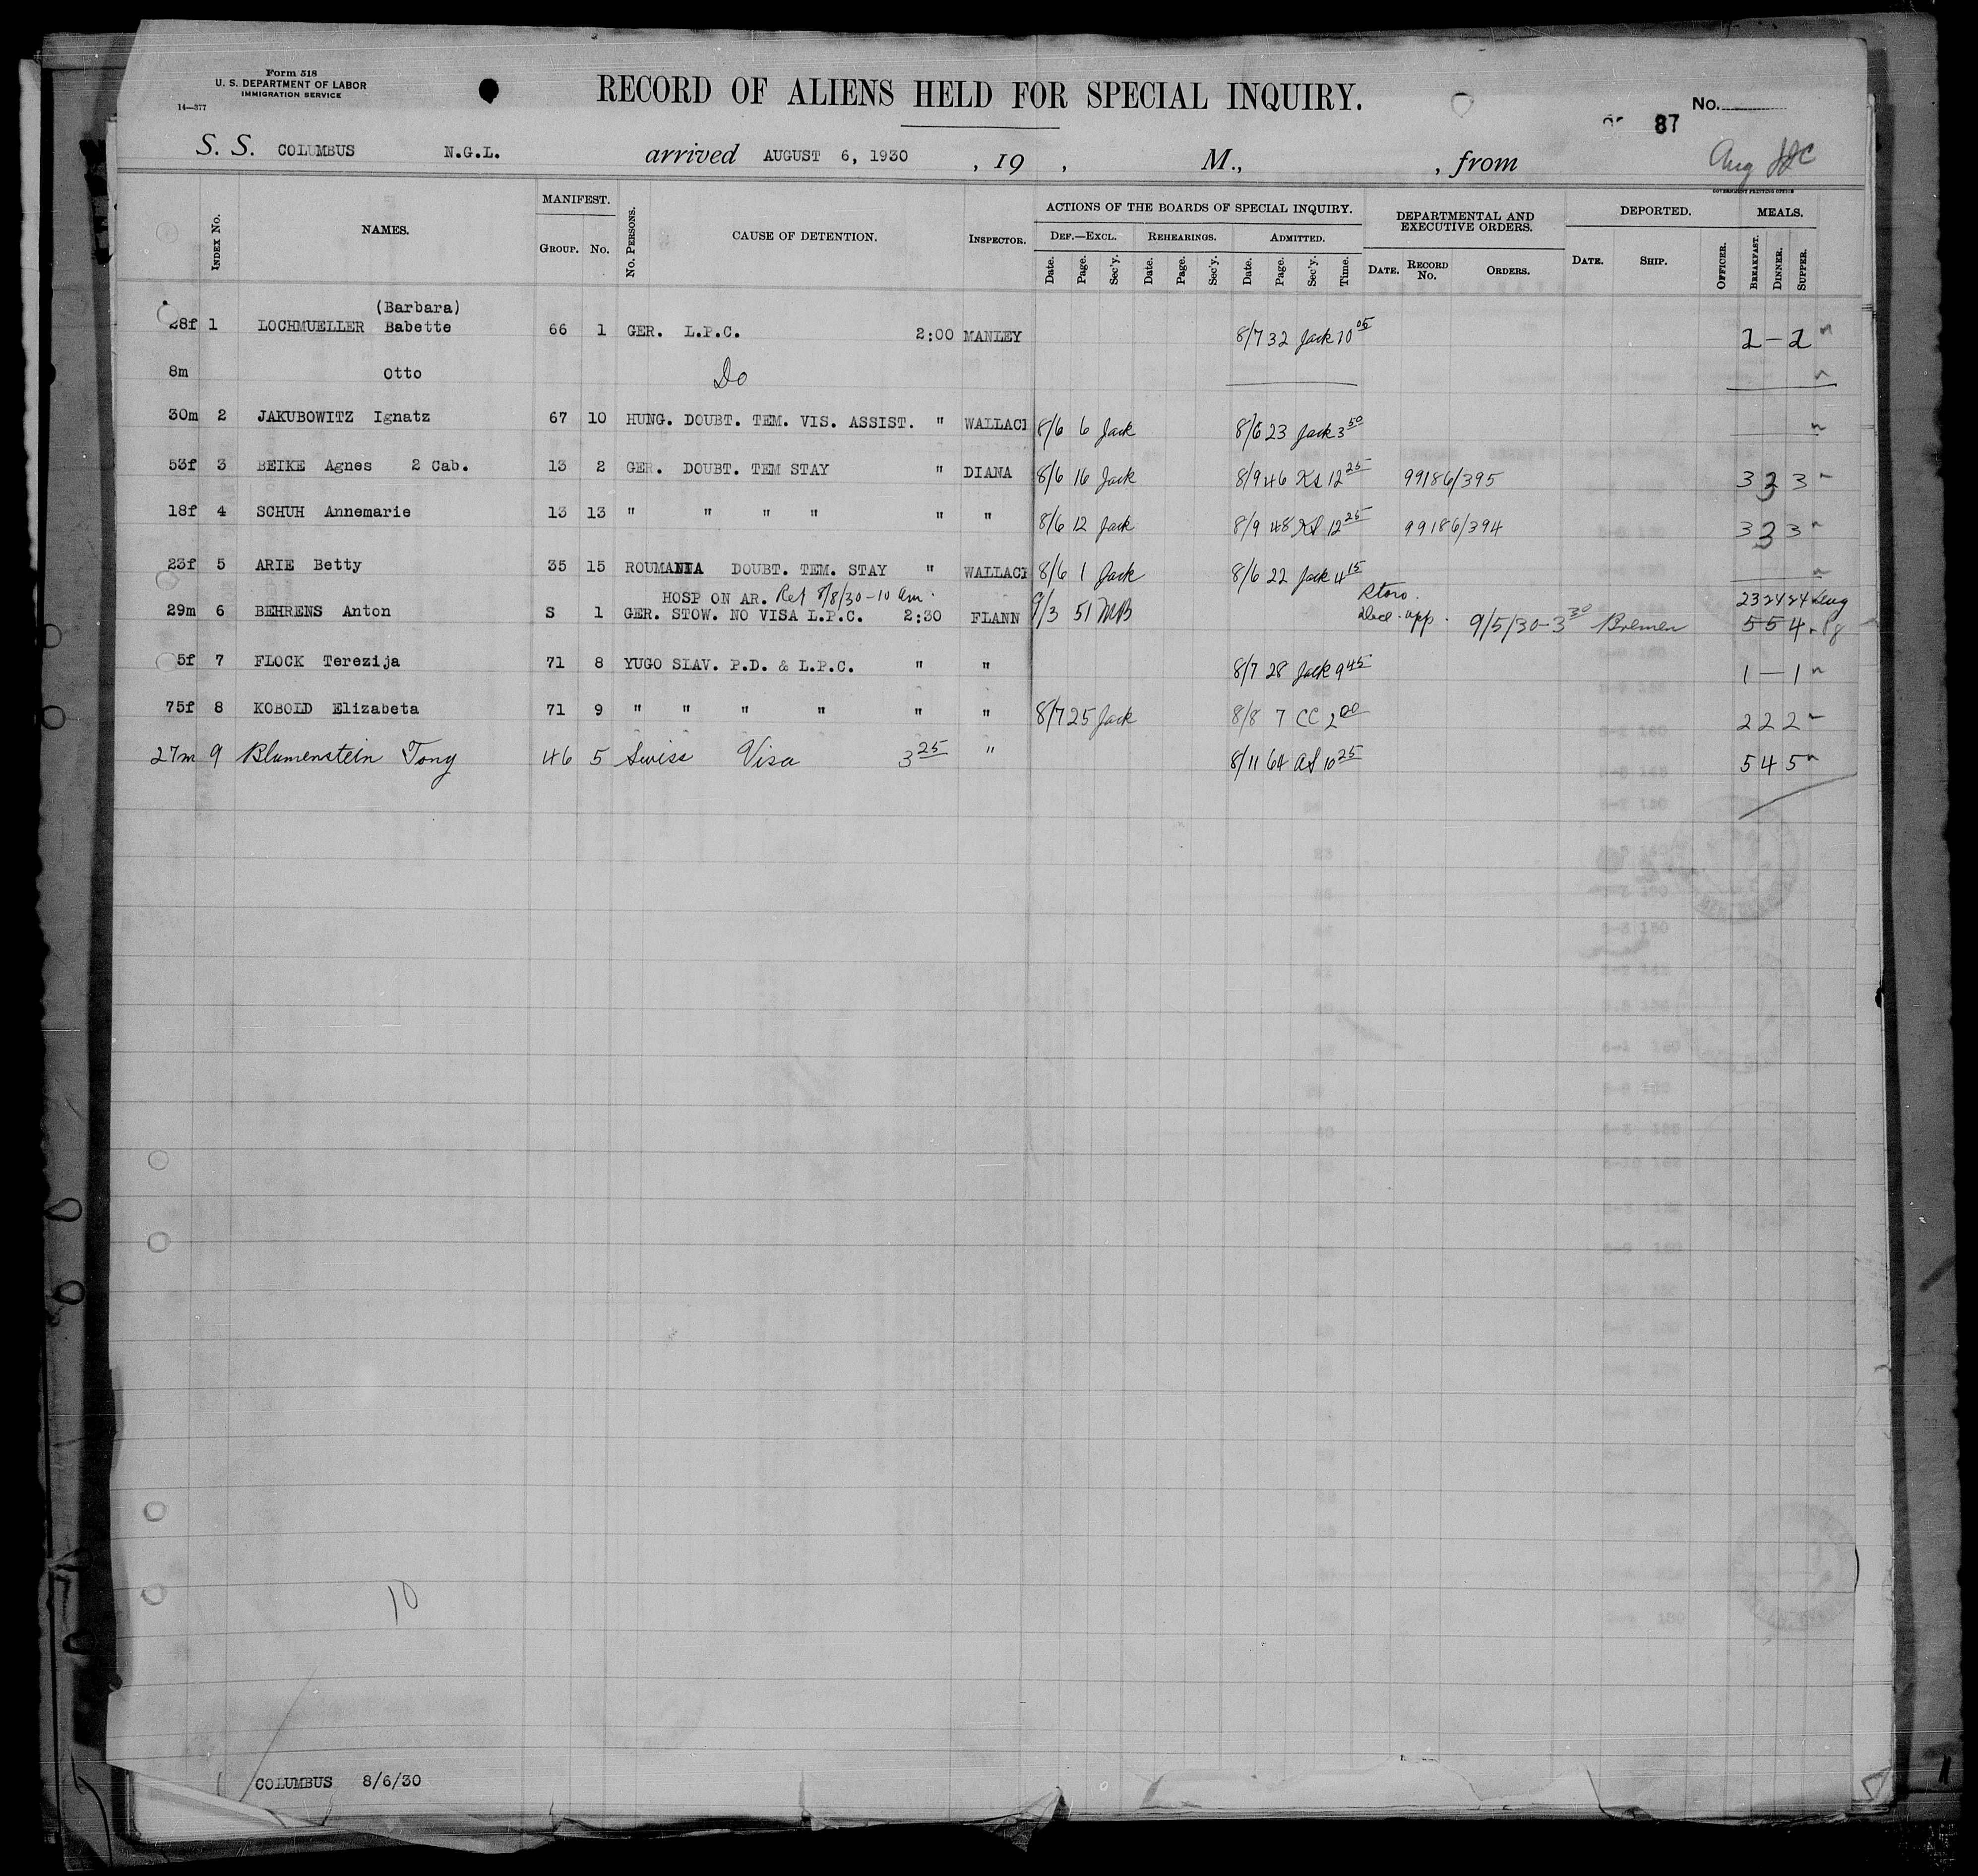 Form 518
U. S. DEPARTMENT OF LABOR
IMMIGRATION SERVICE
14—377
RECORD OF ALIENS HELD FOR SPECIAL INQUIRY.
No.
87
S. S. COLUMBUS N.G.L. arrived AUGUST 6, 1930 , 19 , M., , from
Aug
GOVERNMENT PRINTING OFFICE
INDEX No. NAMES. MANIFEST. GROUP. No. No. PERSONS. CAUSE OF DETENTION. INSPECTOR. ACTIONS OF THE BOARDS OF SPECIAL INQUIRY. DEF.—EXCL. Date. Page. Sec'y. REHEARINGS. Date. Page. Sec'y. ADMITTED. Date. Page. Sec'y. Time. DEPARTMENTAL AND EXECUTIVE ORDERS. DATE. RECORD No. ORDERS. DEPORTED. DATE. SHIP. OFFICER. MEALS. BREAKFAST. DINNER. SUPPER.
(Barbara)
28f 1 LOCHMUELLER Babette 66 1 GER. L.P.C. 2:00 MANLEY 8/7 32 Jack 10 05 2 — 2
8m Otto Do
30m 2 JAKUBOWITZ Ignatz 67 10 HUNG. DOUBT. TEM. VIS. ASSIST. " WALLACE 8/6 6 Jack 8/6 23 Jack 3 50
53f 3 BEIKE Agnes 2 Cab. 13 2 GER. DOUBT. TEM STAY " DIANA 8/6 16 Jack 8/9 46 KS 12 25 99186/395 3 3 3
18f 4 SCHUH Annemarie 13 13 " " " " " " 8/6 12 Jack 8/9 48 KS 12 25 99186/394 3 3 3
23f 5 ARIE Betty 35 15 ROUMANIA DOUBT. TEM. STAY " WALLACE 8/6 1 Jack 8/6 22 Jack 4 15
HOSP ON AR. Ret 8/8/30-10 am. 23 24 24
29m 6 BEHRENS Anton S 1 GER. STOW. NO VISA L.P.C. 2:30 FLANN 9/3 51 MB app. 9/5/30-3 30 Bremen 5 5 4
5f 7 FLOCK Terezija 71 8 YUGO SLAV. P.D. & L.P.C. " " 8/7 28 Jack 9 45 1 — 1
75f 8 KOBOLD Elizabeta 71 9 " " " " " " 8/7 25 Jack 8/8 7 CC 2 00 2 2 2
27m 9 Blumenstein Tony 46 5 Swiss Visa 3 25 " 8/11 64 AS 10 25 5 4 5
10
COLUMBUS 8/6/30